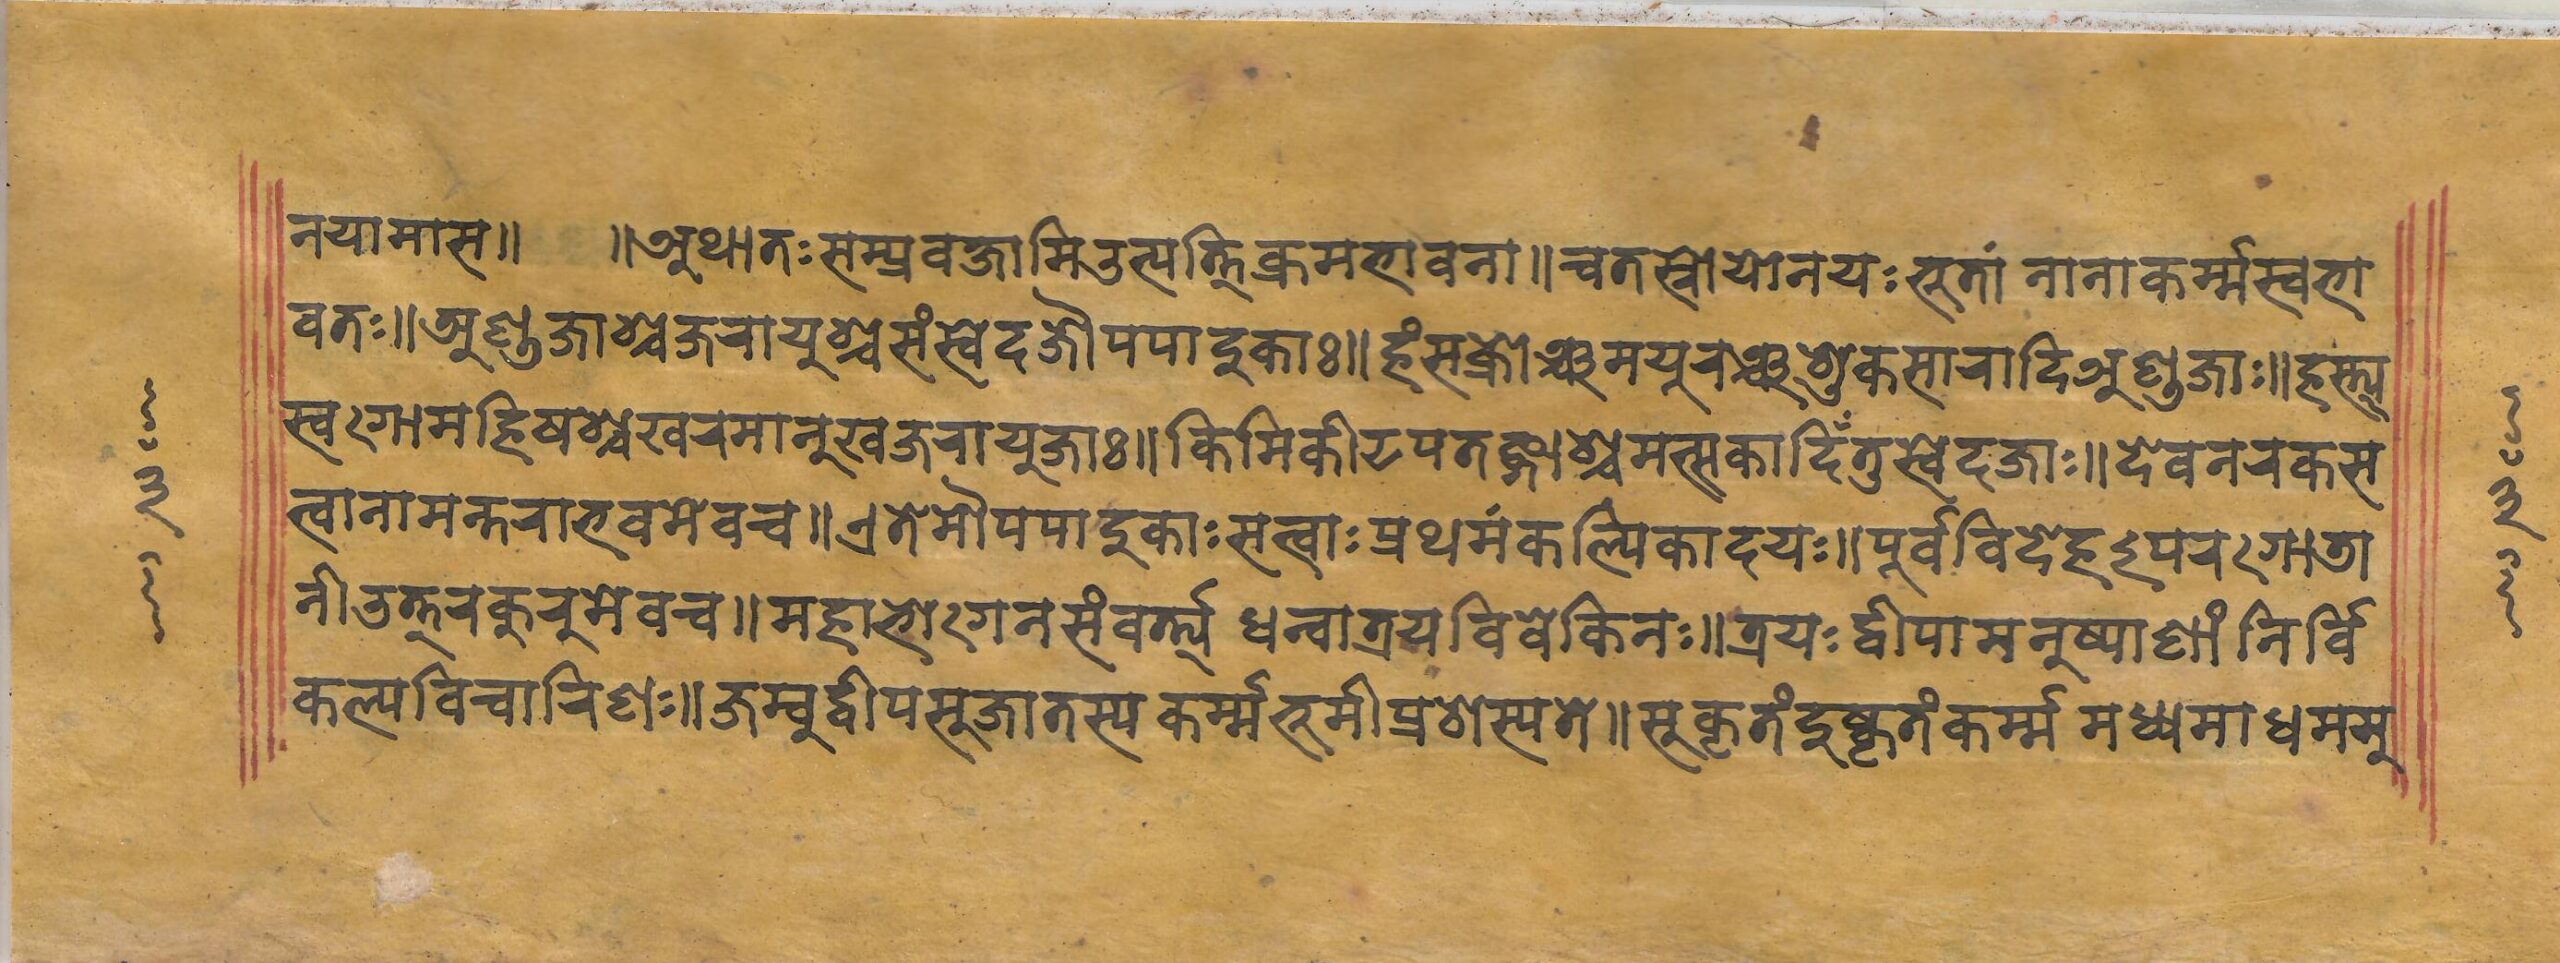 नयामास॥ ॥अथातः सम्प्रवक्षामि उत्पत्तिक्रमभावना॥ चतस्रो योनयः भूतां नानाकर्म्मस्वभा
वतः॥ अण्डजाश्च जरायुश्च संस्वेदजौपपादुकाः॥ हंसक्रोञ्चमयुरञ्च शुकसारादि अण्डजाः॥ हस्त्य
स्वगोमहिषश्च खरमानुख जरायुजाः॥ किमिकीटपतङ्गाश्च मत्सकादिंतु स्वेदजाः॥ देवनरकस
त्वानामन्तराभवमेवच॥ एतेमौपपादुकाः सत्वाः प्रथमंकल्पिकादयः॥ पूर्वविदेहइपरगोडा
नी उत्तरकुरुमेवच॥ महाभोगनसंवर्त्त्य धन्वात्रयविवेकिनः॥ त्रयः द्वीपामनुष्याणां निर्वि
कल्पविचारिणः॥ जम्बुद्वीपसुजातस्य कर्म्मभूमी प्रशेस्यते॥ सुकृतंदुष्कृतंकर्म्म मध्यमाधममु
३
३